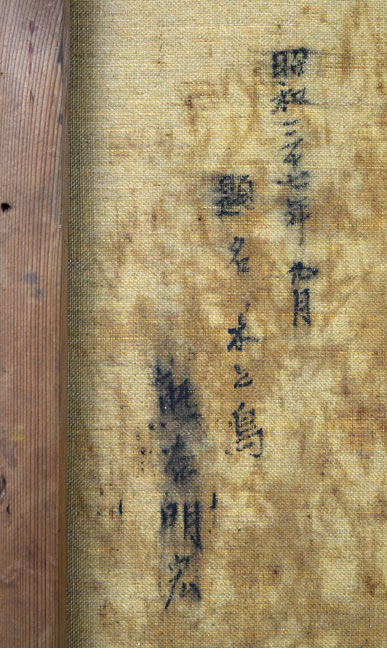 昭和二十七年九月
題名 木と鳥
熊谷明宏